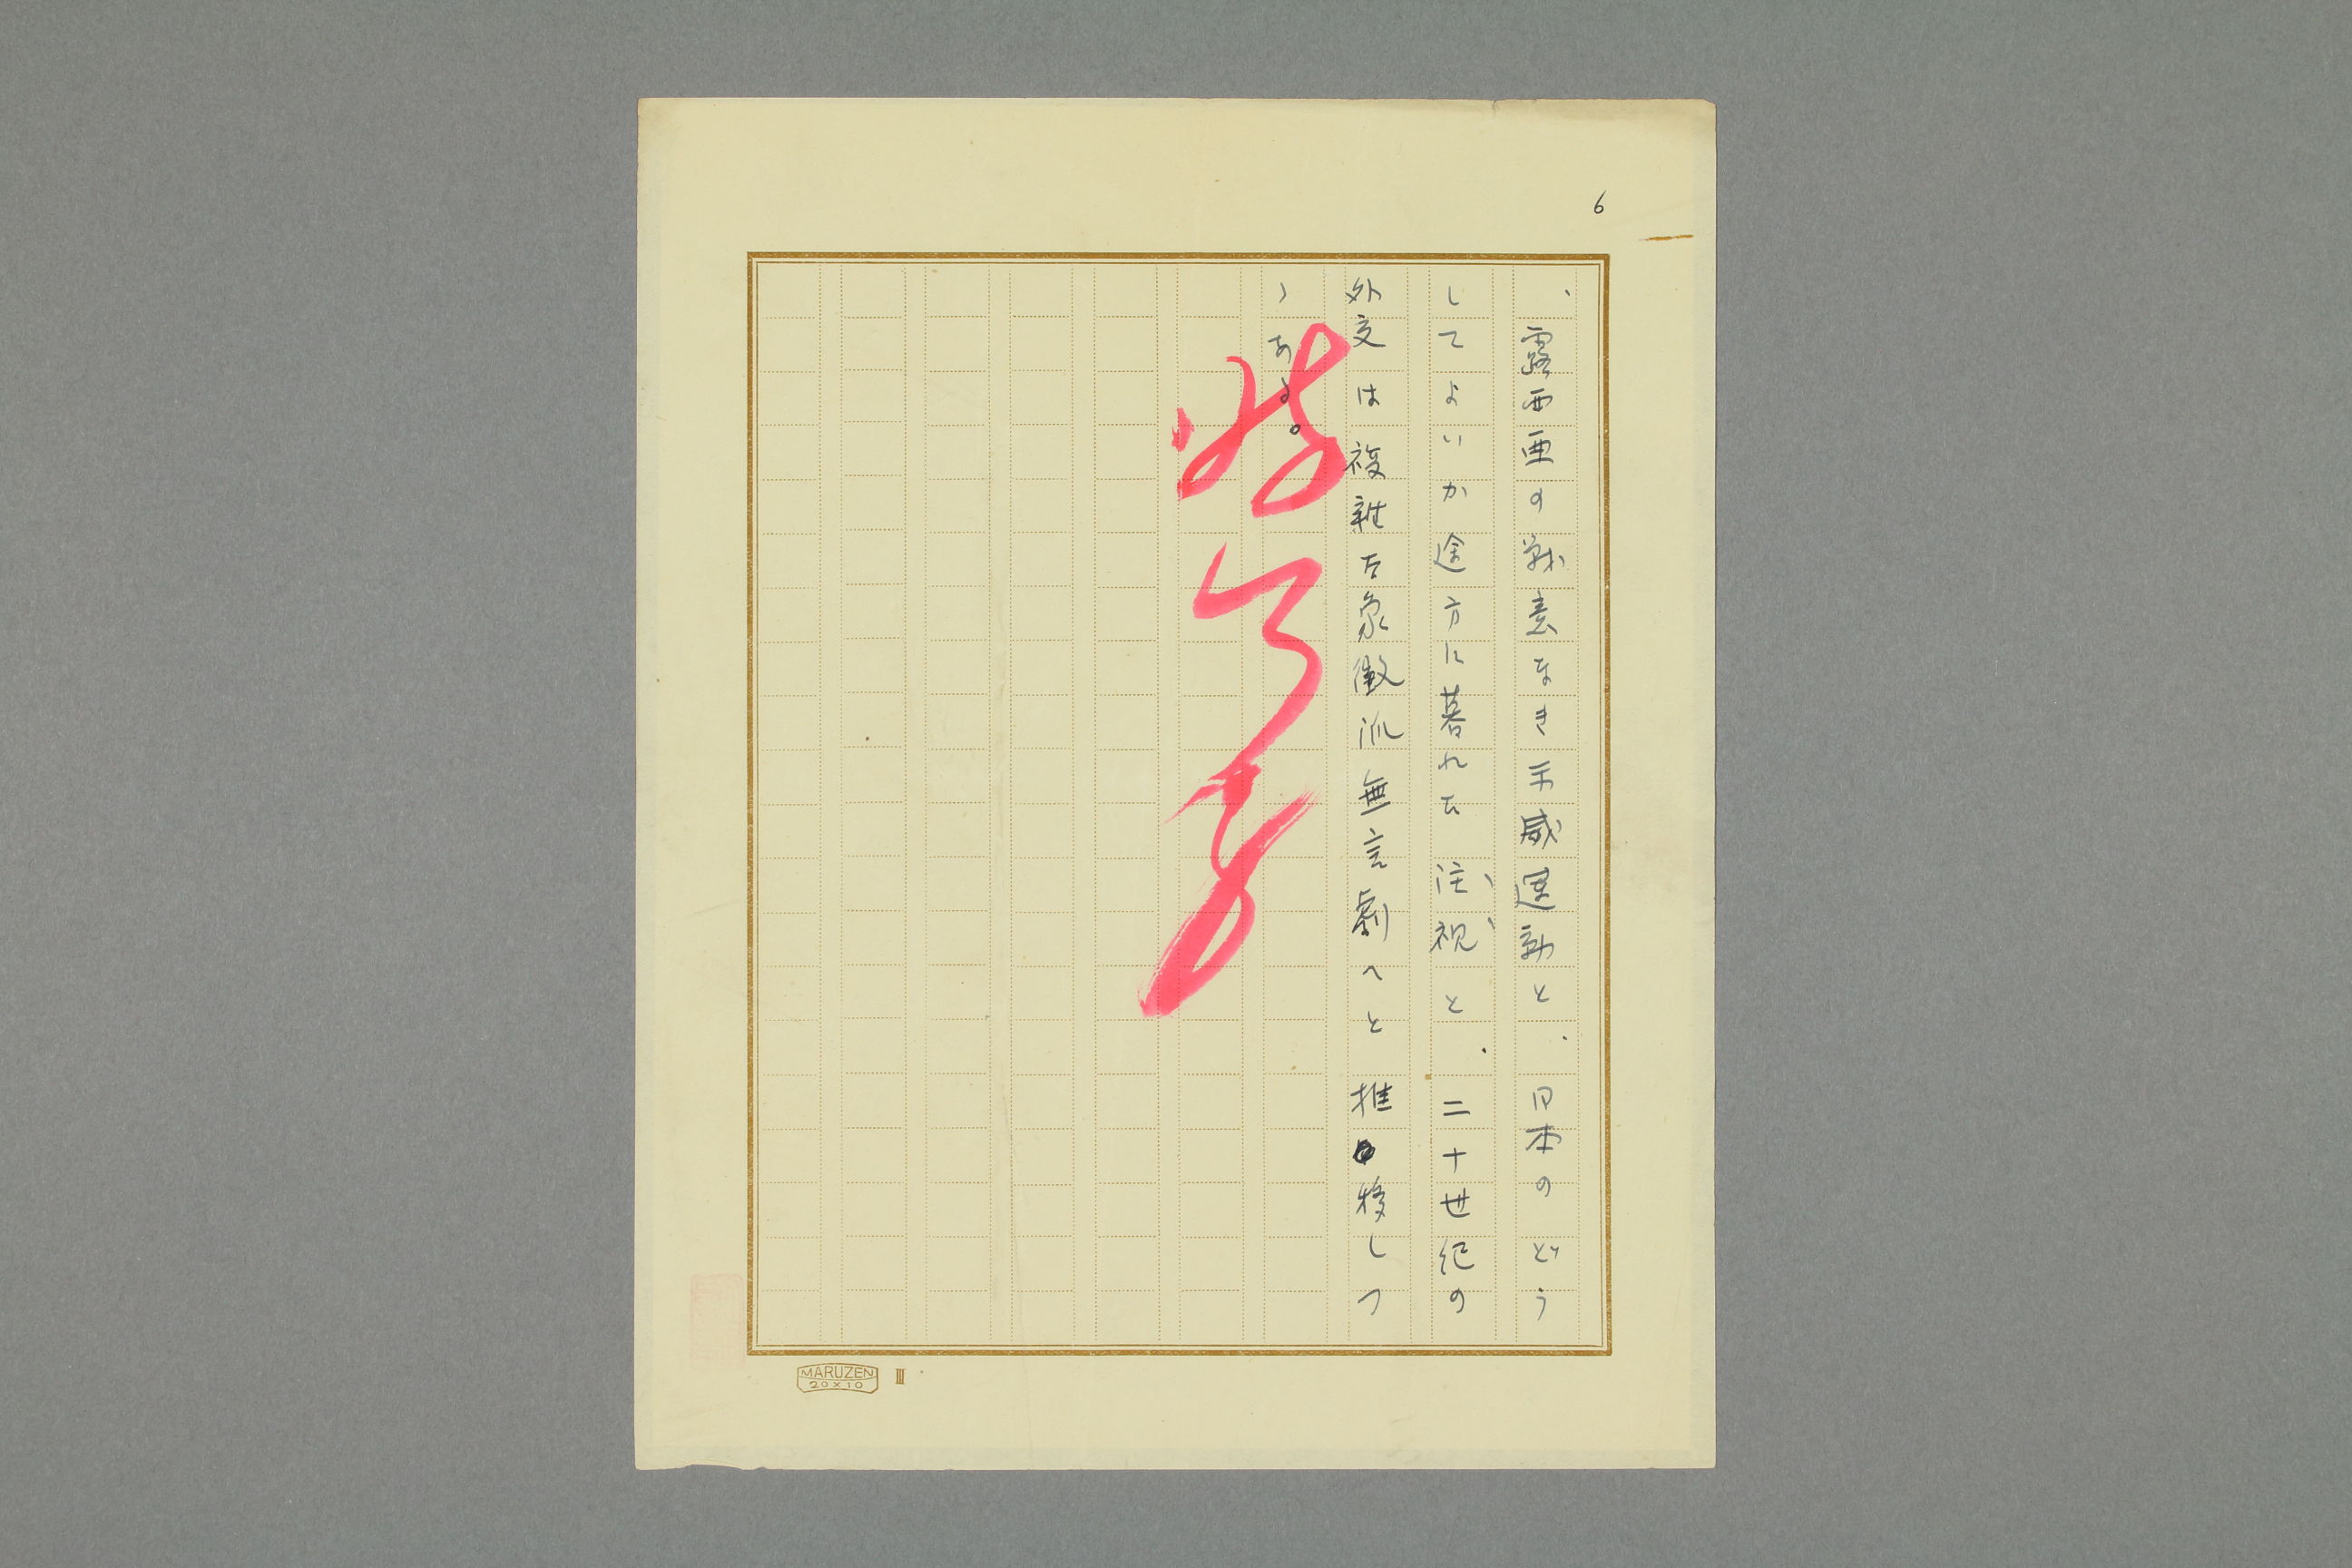 6
、露西亜の戦意なき示威運動と、日本のどう
してよいか途方に暮れた注視と、二十世紀の
外交は複雑な象徴派無言劇へと推移しつ
ゝある。
MARUZEN
20×10
III